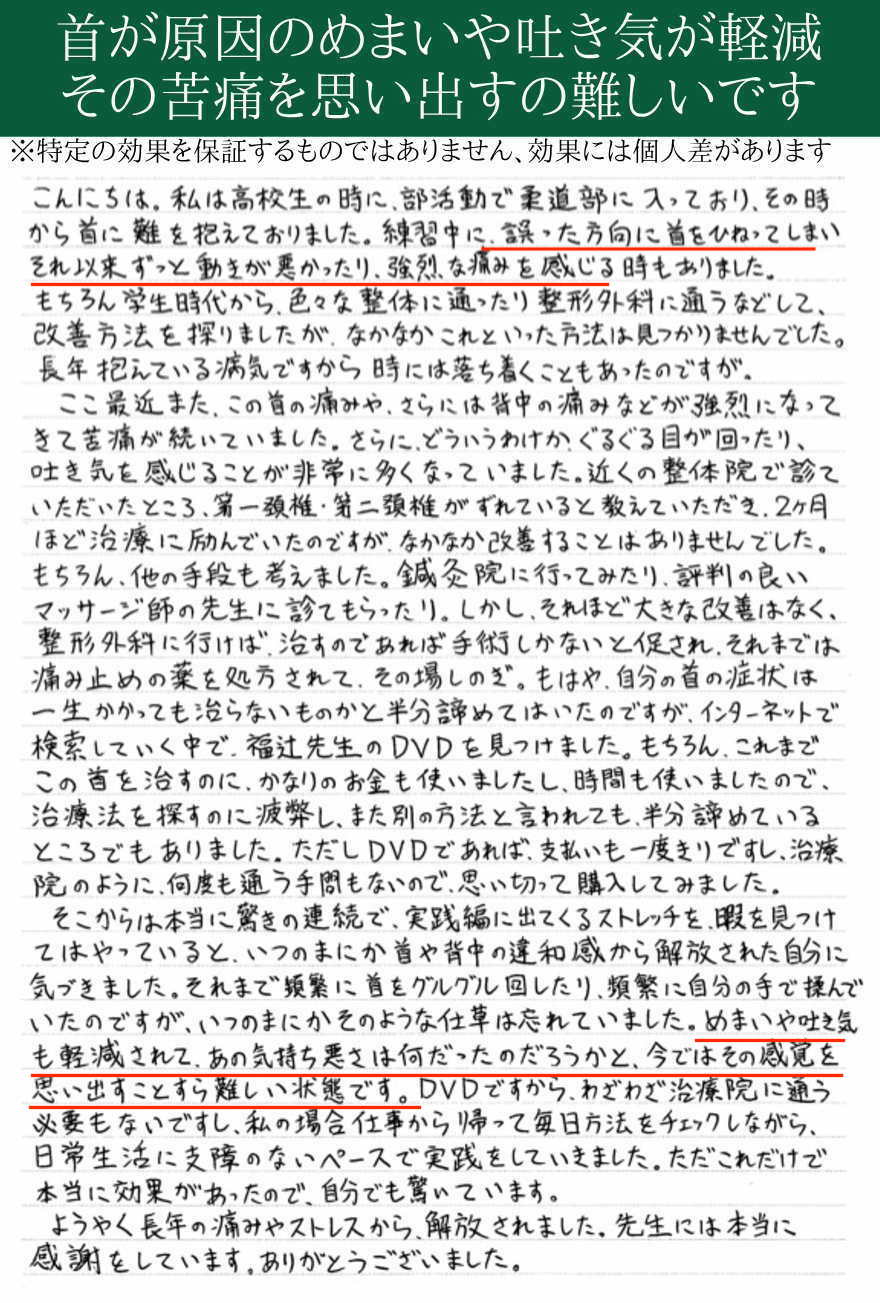 首が原因のめまいや吐き気が軽減
その苦痛を思い出すの難しいです
※特定の効果を保証するものではありません、効果には個人差があります
こんにちは。私は高校生の時に、部活動で柔道部に入っており、その時
から首に難を抱えておりました。練習中に、誤った方向に首をひねってしまい
それ以来ずっと動きが悪かったり、強烈な痛みを感じる時もありました。
もちろん学生時代から、色々な整体に通ったり整形外科に通うなどして、
改善方法を探りましたが、なかなかこれといった方法は見つかりませんでした。
長年抱えている病気ですから時には落ち着くこともあったのですが。
ここ最近また、この首の痛みや、さらには背中の痛みなどが強烈になって
きて苦痛が続いていました。さらに、どういうわけか、ぐるぐる目が回ったり、
吐き気を感じることが非常に多くなっていました。近くの整体院で診て
いただいたところ、第一頚椎・第二頚椎がずれていると教えていただき、2ヶ月
ほど治療に励んでいたのですが、なかなか改善することはありませんでした。
もちろん、他の手段も考えました。鍼灸院に行ってみたり、評判の良い
マッサージ師の先生に診てもらったり。しかし、それほど大きな改善はなく、
整形外科に行けば、治すのであれば手術しかないと促され、それまでは
痛み止めの薬を処方されて、その場しのぎ。もはや、自分の首の症状は
一生かかっても治らないものかと半分諦めてはいたのですが、インターネットで
検索していく中で、福辻先生のDVDを見つけました。もちろん、これまで
この首を治すのに、かなりのお金も使いましたし、時間も使いましたので、
治療法を探すのに疲弊し、また別の方法と言われても、半分諦めている
ところでもありました。ただしDVDであれば、支払いも一度きりですし、治療
院のように、何度も通う手間もないので、思い切って購入してみました。
そこからは本当に驚きの連続で、実践編に出てくるストレッチを、暇を見つけ
てはやっていると、いつのまにか首や背中の違和感から解放された自分に
気づきました。それまで頻繁に首をグルグル回したり、頻繁に自分の手で揉んで
いたのですが、いつのまにかそのような仕草は忘れていました。めまいや吐き気
も軽減されて、あの気持ち悪さは何だったのだろうかと、今ではその感覚を
思い出すことすら難しい状態です。DVDですから、わざわざ治療院に通う
必要もないですし、私の場合仕事から帰って毎日方法をチェックしながら、
日常生活に支障のないペースで実践をしていきました。ただこれだけで
本当に効果があったので、自分でも驚いています。
ようやく長年の痛みやストレスから、解放されました。先生には本当に
感謝をしています。ありがとうございました。